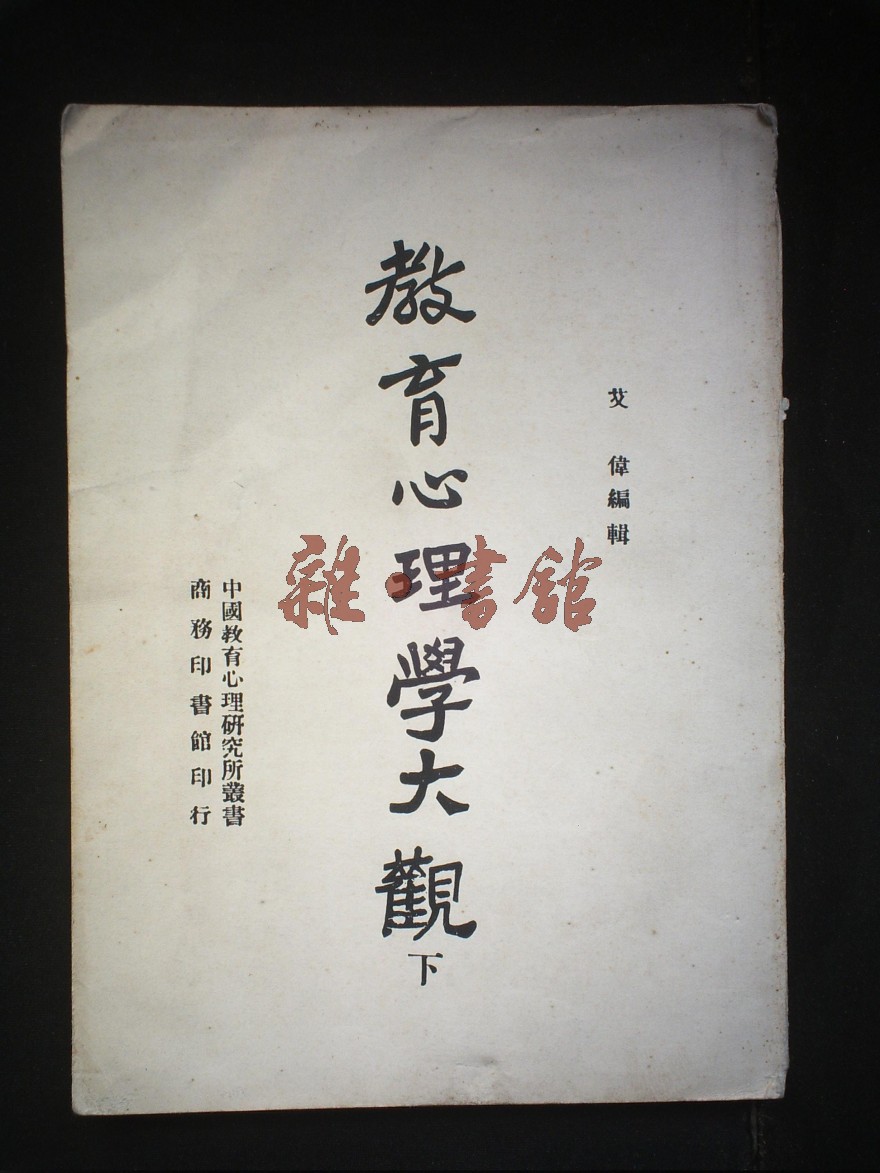 艾偉編輯
教育心理學大觀下
中國教育心理研究所叢書
商務印書館印行
雜·書館